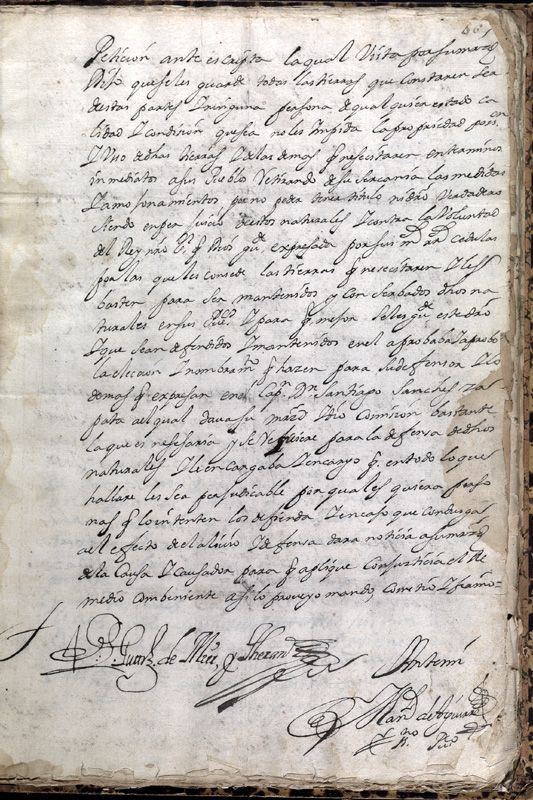 Petición ante escripta la qual Vista por su mrd
Dijo que se les guarde todas las tierras que constaren ser
de estas partes Y ninguna persona de qual quiera estado ca
lidad Y condición que sea no les Impida la propriedad posn
Y Vso de dhas tierras Y de las demas q nesecitaren en terminos
inmediatos a su Pueblo Retirando de su sercania las medidas
Y amojonamientos por no poder tener titulo ni dro Verdadero
siendo en per juicio de estos naturales Y contra la Voluntad
del Rey nro Sr q Dios gde expresada por sus rs cedulas
por las que les consede las tierras q nesecitaren Y les
basten para ser mantenidos y conserbados dhos na
turales en sus Y para q mejor se les gde este dro
Y que sean defendidos Y mantenidos en el aprobaba Y aprobo
la eleccion Y nombramto q hazen para su defensor Y lo
demas q expresan en el Capn Dn Santiago Sanches za
pata al qual daba su mrd Y dio comision bastante
la que es nesesaria y se requiere para la defensa de dhos
naturales Y le encargaba Y encargo q en todo lo que
hallare les sea perjudicable por quales quiera perso
nas q lo intenten los defienda Y en caso que conbenga
al effecto de el alivio Y defensa dara noticia a su mrd
de la Causa Y causador para q aplique con justicia el Re
medio combeniente asi lo proveyo mando, y firmo=
Ante mi
Manl de